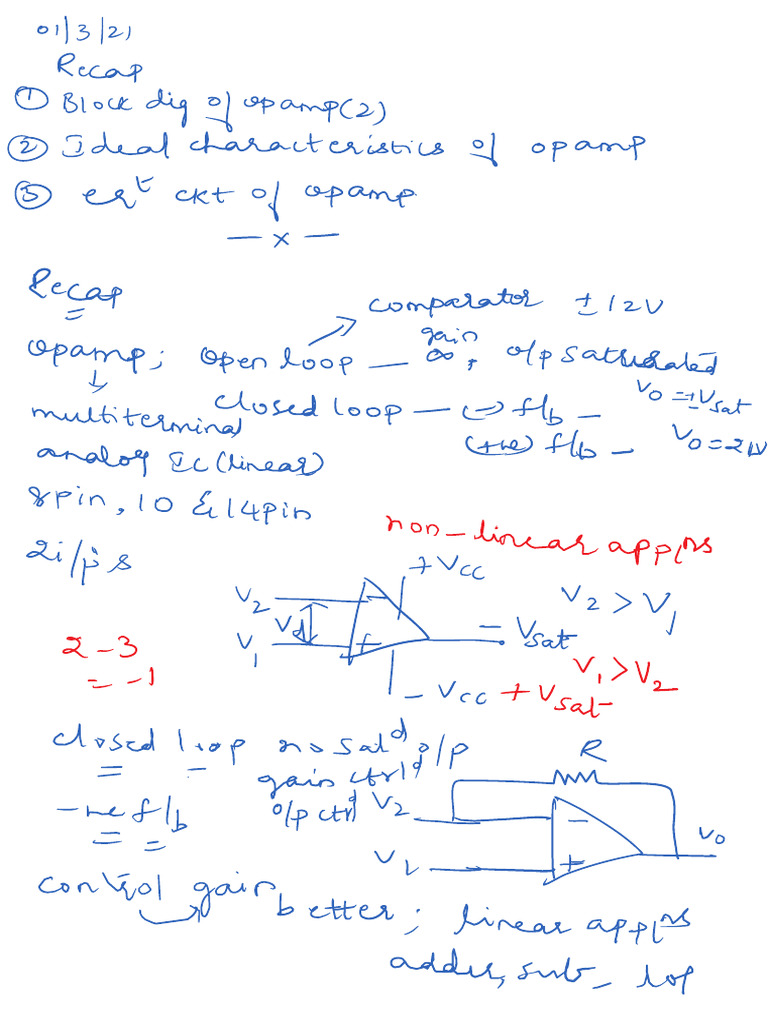 01/3/21
Recap
① Block dig of opamp(2)
② Ideal characteristics of opamp
③ eqt ckt of opamp
— x —
Recap
comparator ± 12V
opamp; open loop — gain ∞, o/p saturated
closed loop — (-) f/b — Vo = ±Vsat
(+ve) f/b —
multiterminal
analog IC (linear)
8pin, 10 & 14pin
2i/p's
non-linear appl/ns
+Vcc
V2
Vd
V1
V2 > V1
- Vsat
2 - 3
= -1
V1 > V2
- Vcc + Vsat
closed loop no satd o/p
gain ctrld
-ve f/b o/p ctrld
R
V2
V1
Vo
control gain better; linear appl/ns
adder, sub -